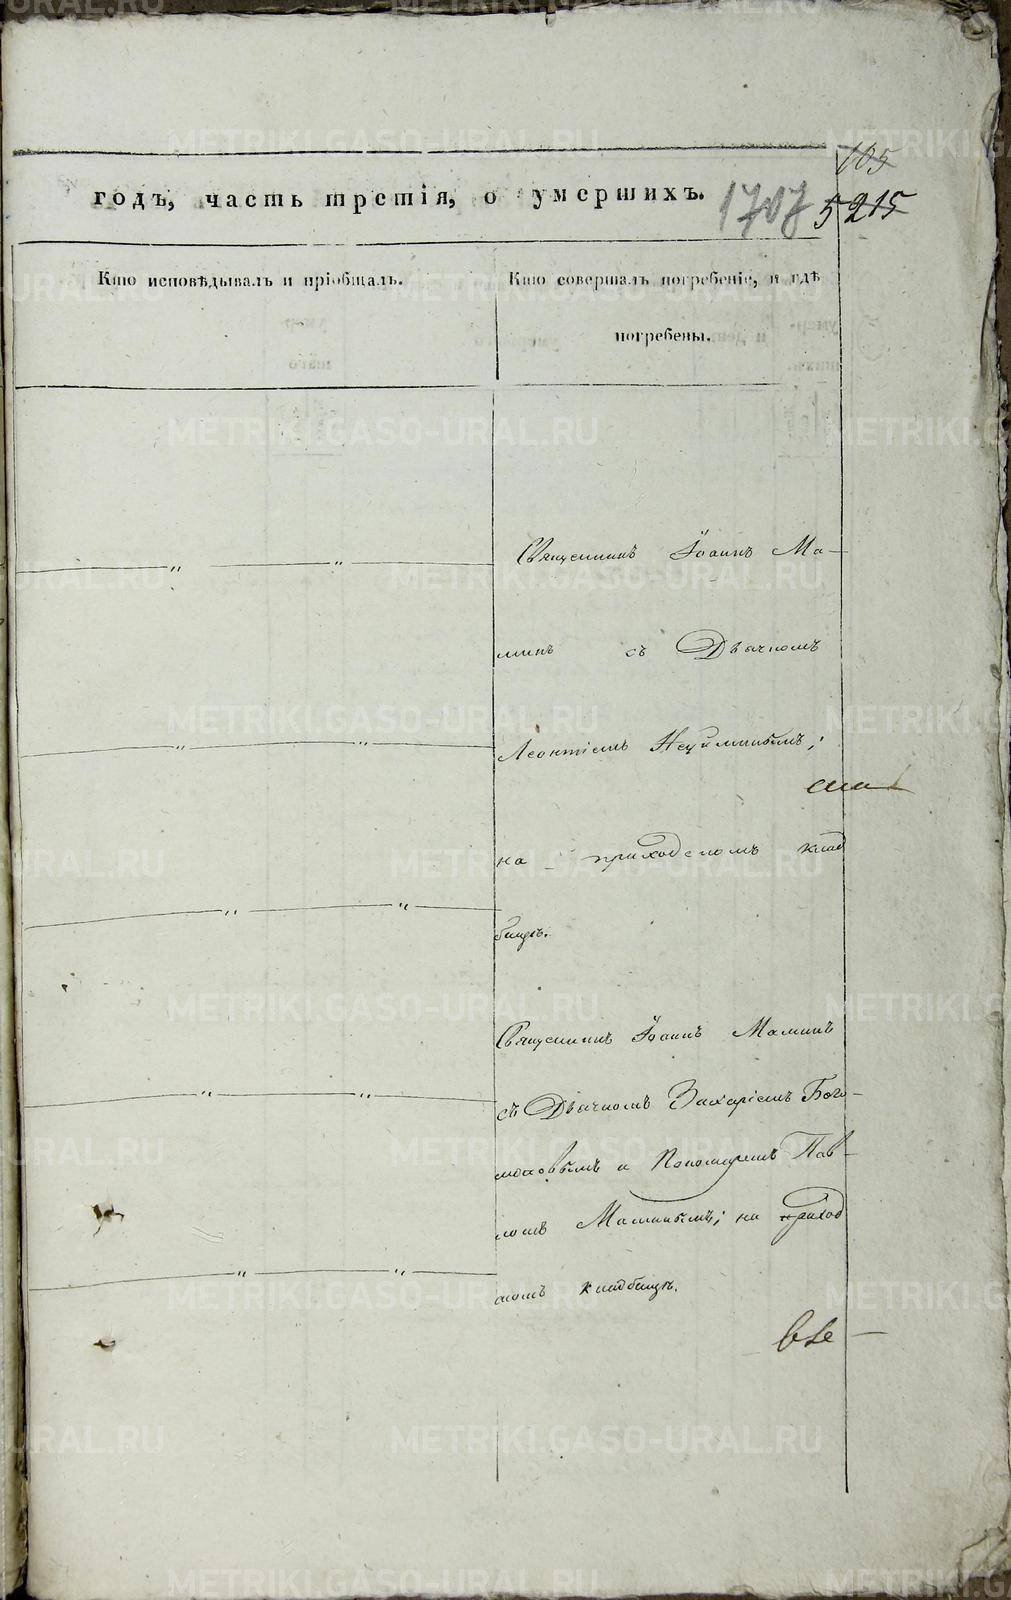 105
годъ, часть третія, о умершихъ. 1707 5215
Кто исповѣдывалъ и пріобщалъ.
Кто совершалъ погребеніе, и гдѣ
погребены.
Священникъ Іоаннъ Ма-
минъ съ Дьячкомъ
Леонтіемъ
на приходскомъ клад
бищѣ.
Священникъ Іоаннъ Маминъ
съ Дьячкомъ Захаріемъ Бого-
моловымъ и Пономаремъ Пав-
ломъ Маминымъ; на приход
скомъ кладбищѣ.
METRIKI.GASO-URAL.RU